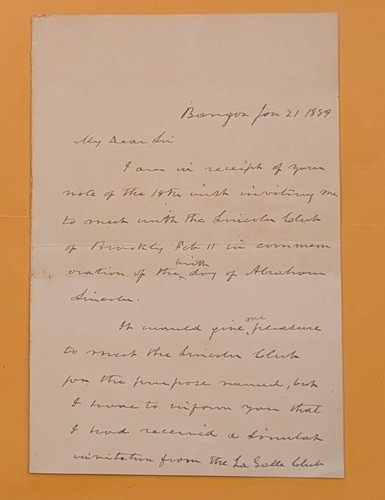 Bangor Jan 21 1889
My Dear Sir
I am in receipt of your
note of the 18th inst inviting me
to meet with the Lincoln Club
of Brooklyn Feb 11 in commem
oration of the birth day of Abraham
Lincoln.
It would give me pleasure
to meet the Lincoln Club
for the purpose named, but
I have to inform you that
I had received a similar
invitation from the La Salle Club